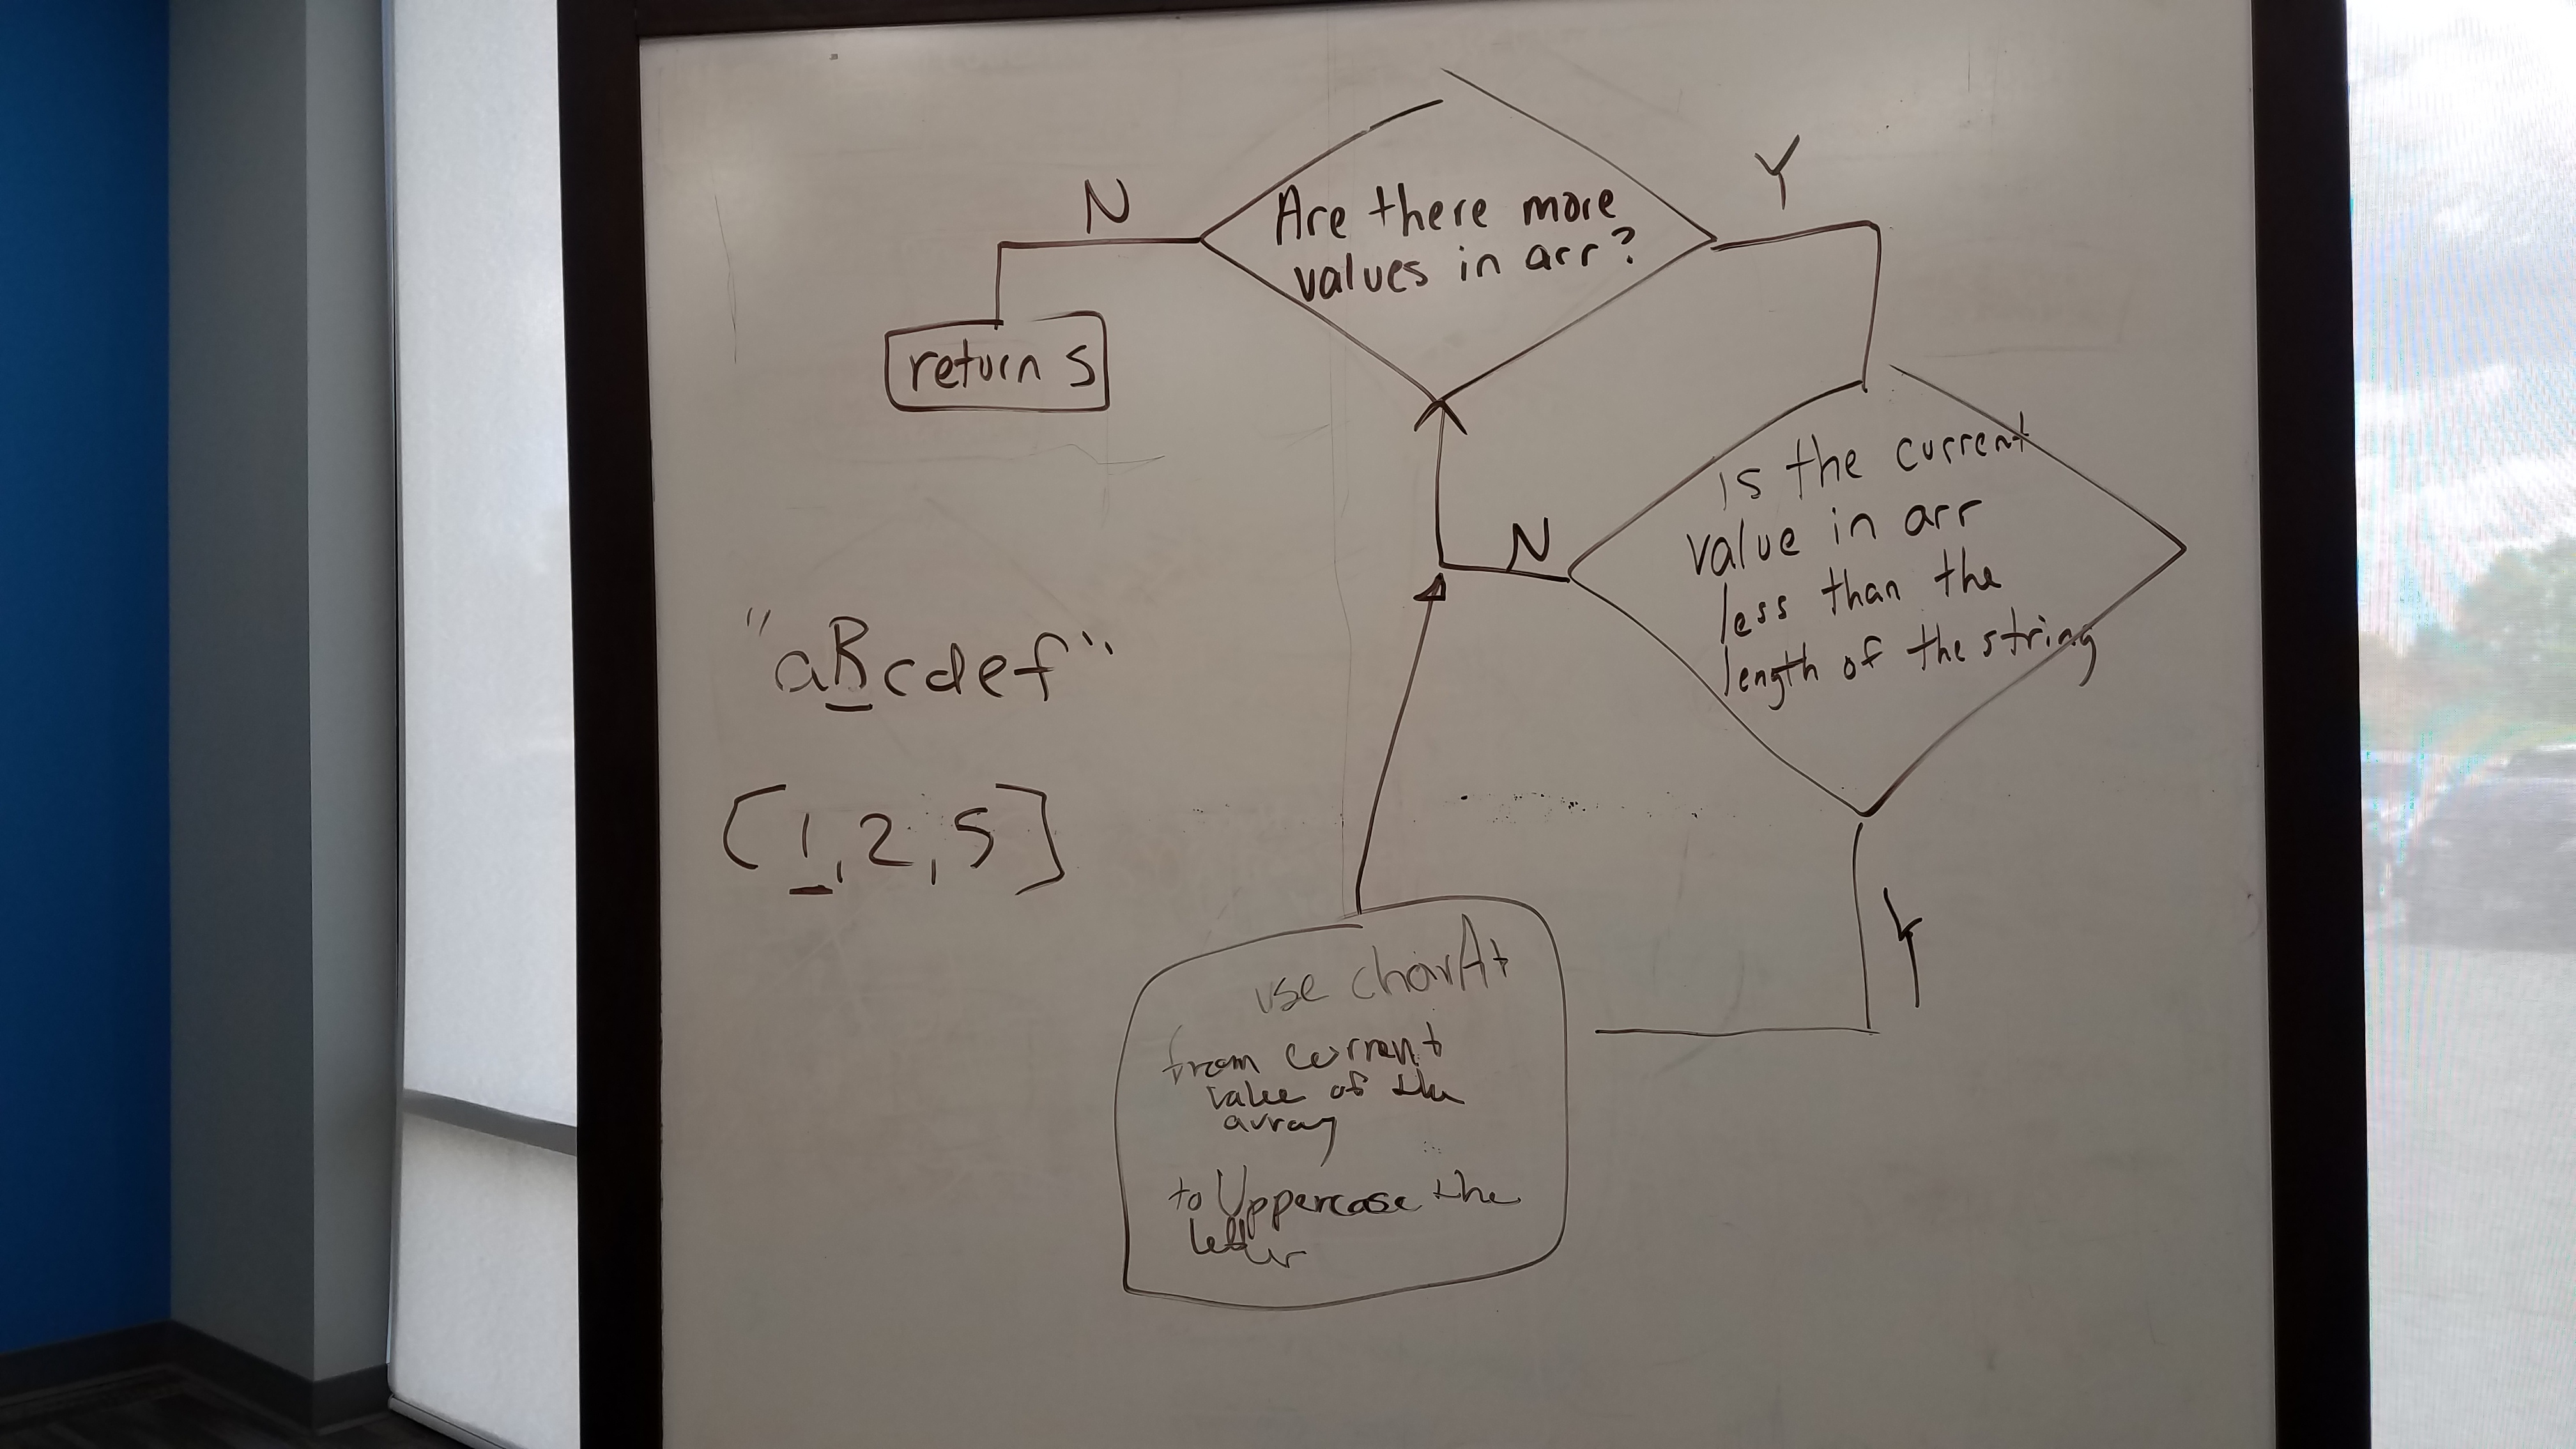 Are there more
values in arr?
N
Y
return s
is the current
value in arr
less than the
length of the string
N
Y
"aBcdef"
[1,2,5]
use charAt
from current
value of the
array
to Uppercase the
letter